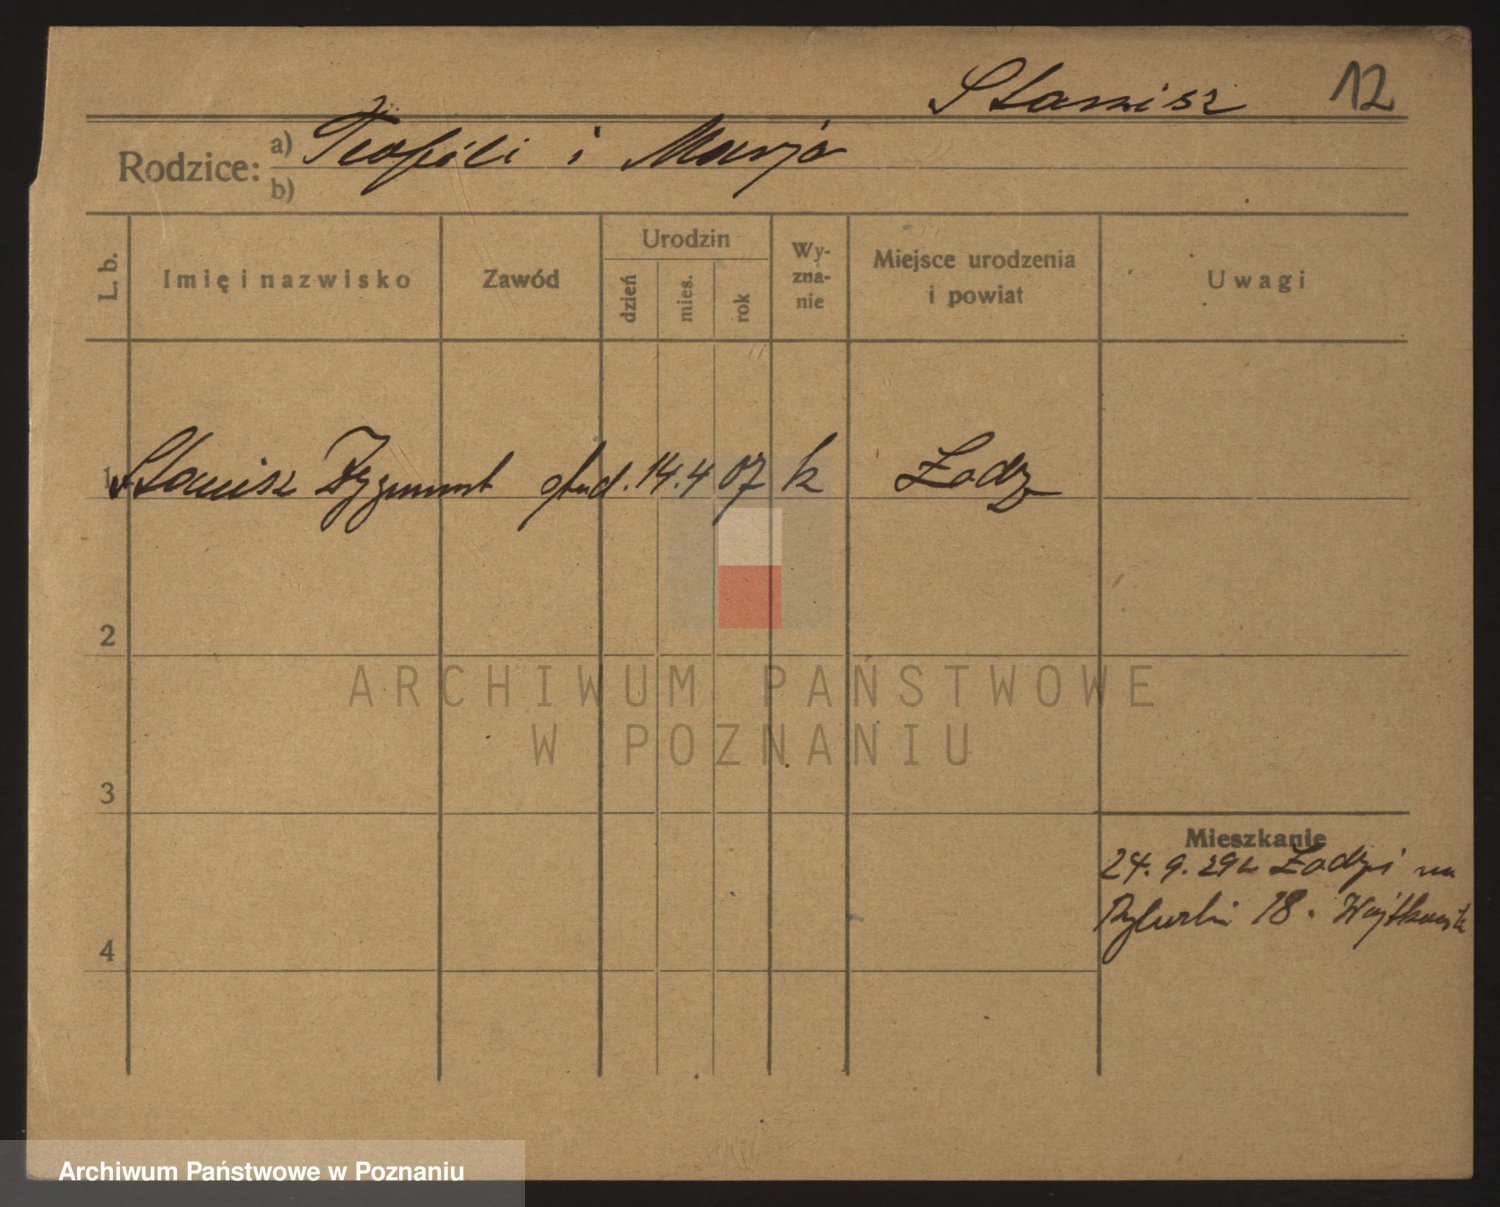 Stanisz 12
Rodzice: a) Teofil i Marja
b)
L. b. Imię i nazwisko Zawód Urodzin dzień mies. rok Wy-zna-nie Miejsce urodzenia i powiat Uwagi
1 Stanisz Zygmunt stud. 14. 4 07 k Łodz
2
ARCHIWUM PAŃSTWOWE
W POZNANIU
3
Mieszkanie
24. 9. 29 z Łodzi na
18.
4
Archiwum Państwowe w Poznaniu